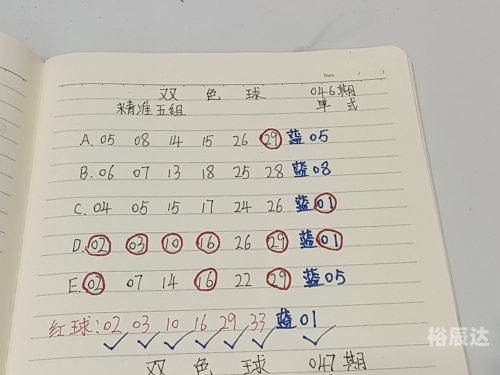 Date
双 色 球 046期
精准五组 单式
A.05 08 14 15 26 29 蓝05
B.06 07 13 18 25 28 蓝08
C.04 05 15 17 24 26 蓝01
D.02 03 10 16 26 29 蓝01
E.02 07 14 16 22 29 蓝05
红球:02 03 10 16 29 33 蓝01
双 色 球 047期
裕辰达